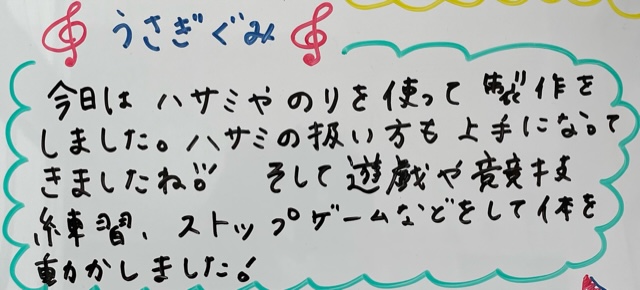 うさぎぐみ
今日は ハサミや のりを 使って 製作を
しました。ハサミの扱い方も 上手になって
きましたね!! そして 遊戯や 競技
練習、ストップゲームなどをして体を
動かしました!